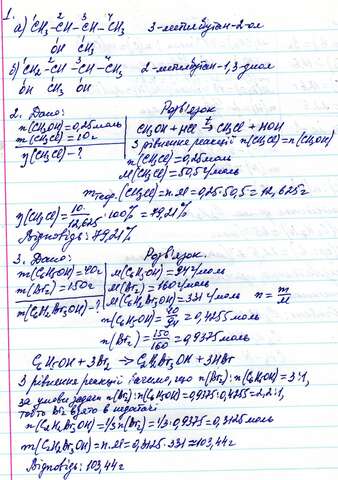 1.
а) CH₃–CH–CH–CH₃ 3-метилбутан-2-ол
1 2 3 4
OH CH₃
б) CH₂–CH–CH–CH₃ 2-метилбутан-1,3-диол
OH CH₃ OH
2. Дано: Розв'язок
n(CH₃OH)=0,25моль CH₃OH + HCl →t CH₃Cl + HOH
m(CH₃Cl)=10г З рівняння реакції n(CH₃Cl)=n(CH₃OH)
η(CH₃Cl)-? n(CH₃Cl)=0,25моль
M(CH₃Cl)=50,5г/моль
mтеор.(CH₃Cl)=n·M=0,25·50,5=12,625г
η(CH₃Cl)=10/12,625·100%=79,21%
Відповідь: 79,21%
3. Дано: Розв'язок.
m(C₆H₅OH)=40г M(C₆H₅OH)=94г/моль
m(Br₂)=150г M(Br₂)=160г/моль
m(C₆H₂Br₃OH)-? M(C₆H₂Br₃OH)=331г/моль n=m/M
n(C₆H₅OH)=40/94=0,4255моль
n(Br₂)=150/160=0,9375моль
C₆H₅OH + 3Br₂ → C₆H₂Br₃OH + 3HBr
З рівняння реакції бачимо, що n(Br₂):n(C₆H₅OH)=3:1,
за умови задачі n(Br₂):n(C₆H₅OH)=0,9375:0,4255=2,2:1,
тобто Br₂ взято в нестачі
n(C₆H₂Br₃OH)=1/3n(Br₂)=1/3·0,9375=0,3125моль
m(C₆H₂Br₃OH)=n·M=0,3125·331=103,44г
Відповідь: 103,44г